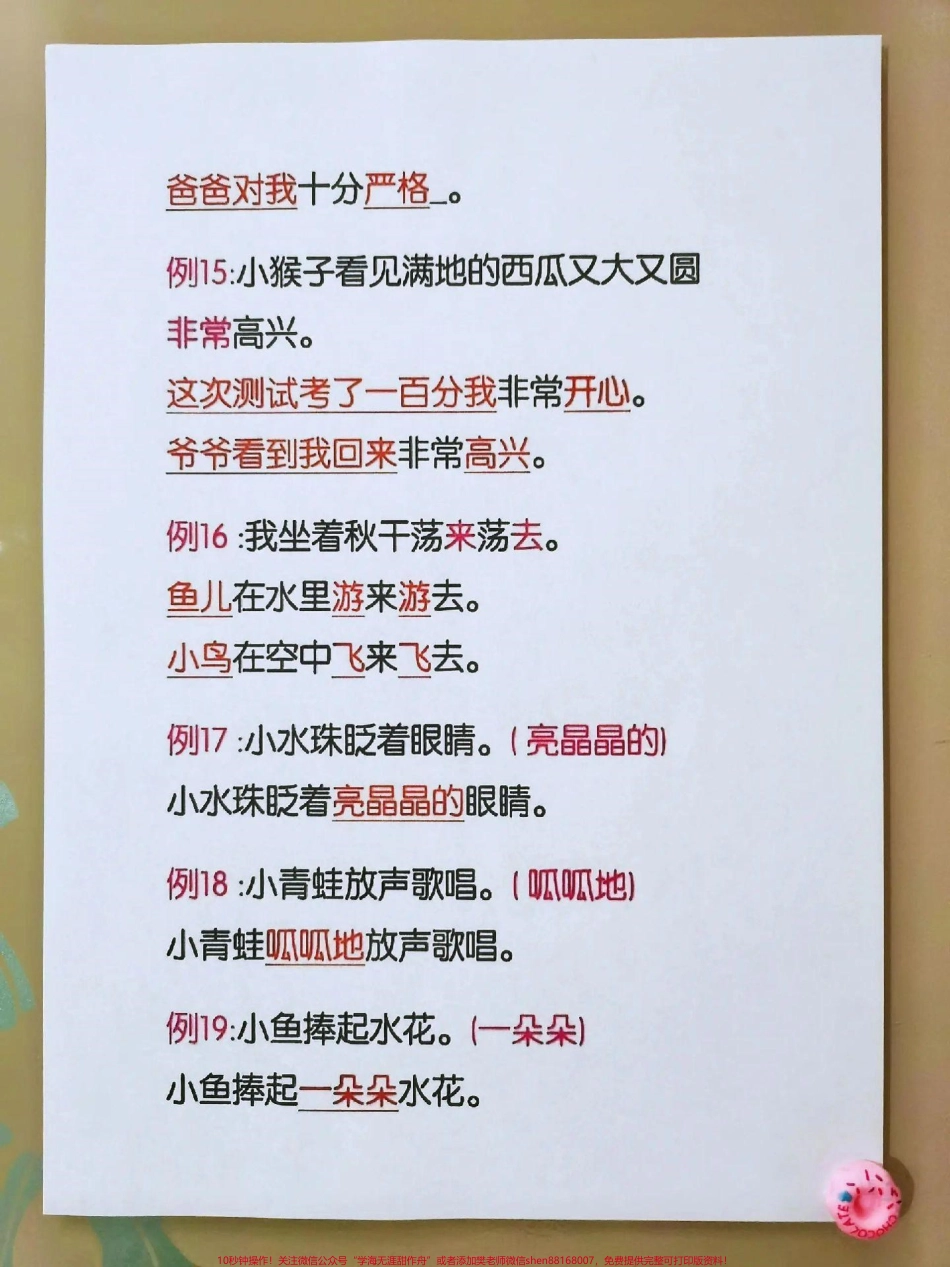 爸爸对我十分严格_。
例15:小猴子看见满地的西瓜又大又圆
非常高兴。
这次测试考了一百分我非常开心。
爷爷看到我回来非常高兴。
例16 :我坐着秋千荡来荡去。
鱼儿在水里游来游去。
小鸟在空中飞来飞去。
例17 :小水珠眨着眼睛。( 亮晶晶的)
小水珠眨着亮晶晶的眼睛。
例18 :小青蛙放声歌唱。( 呱呱地)
小青蛙呱呱地放声歌唱。
例19:小鱼捧起水花。(一朵朵)
小鱼捧起一朵朵水花。
CHOCOLATE
10秒钟操作！关注微信公众号“学海无涯甜作舟”或者添加樊老师微信shen88168007，免费提供完整可打印版资料！